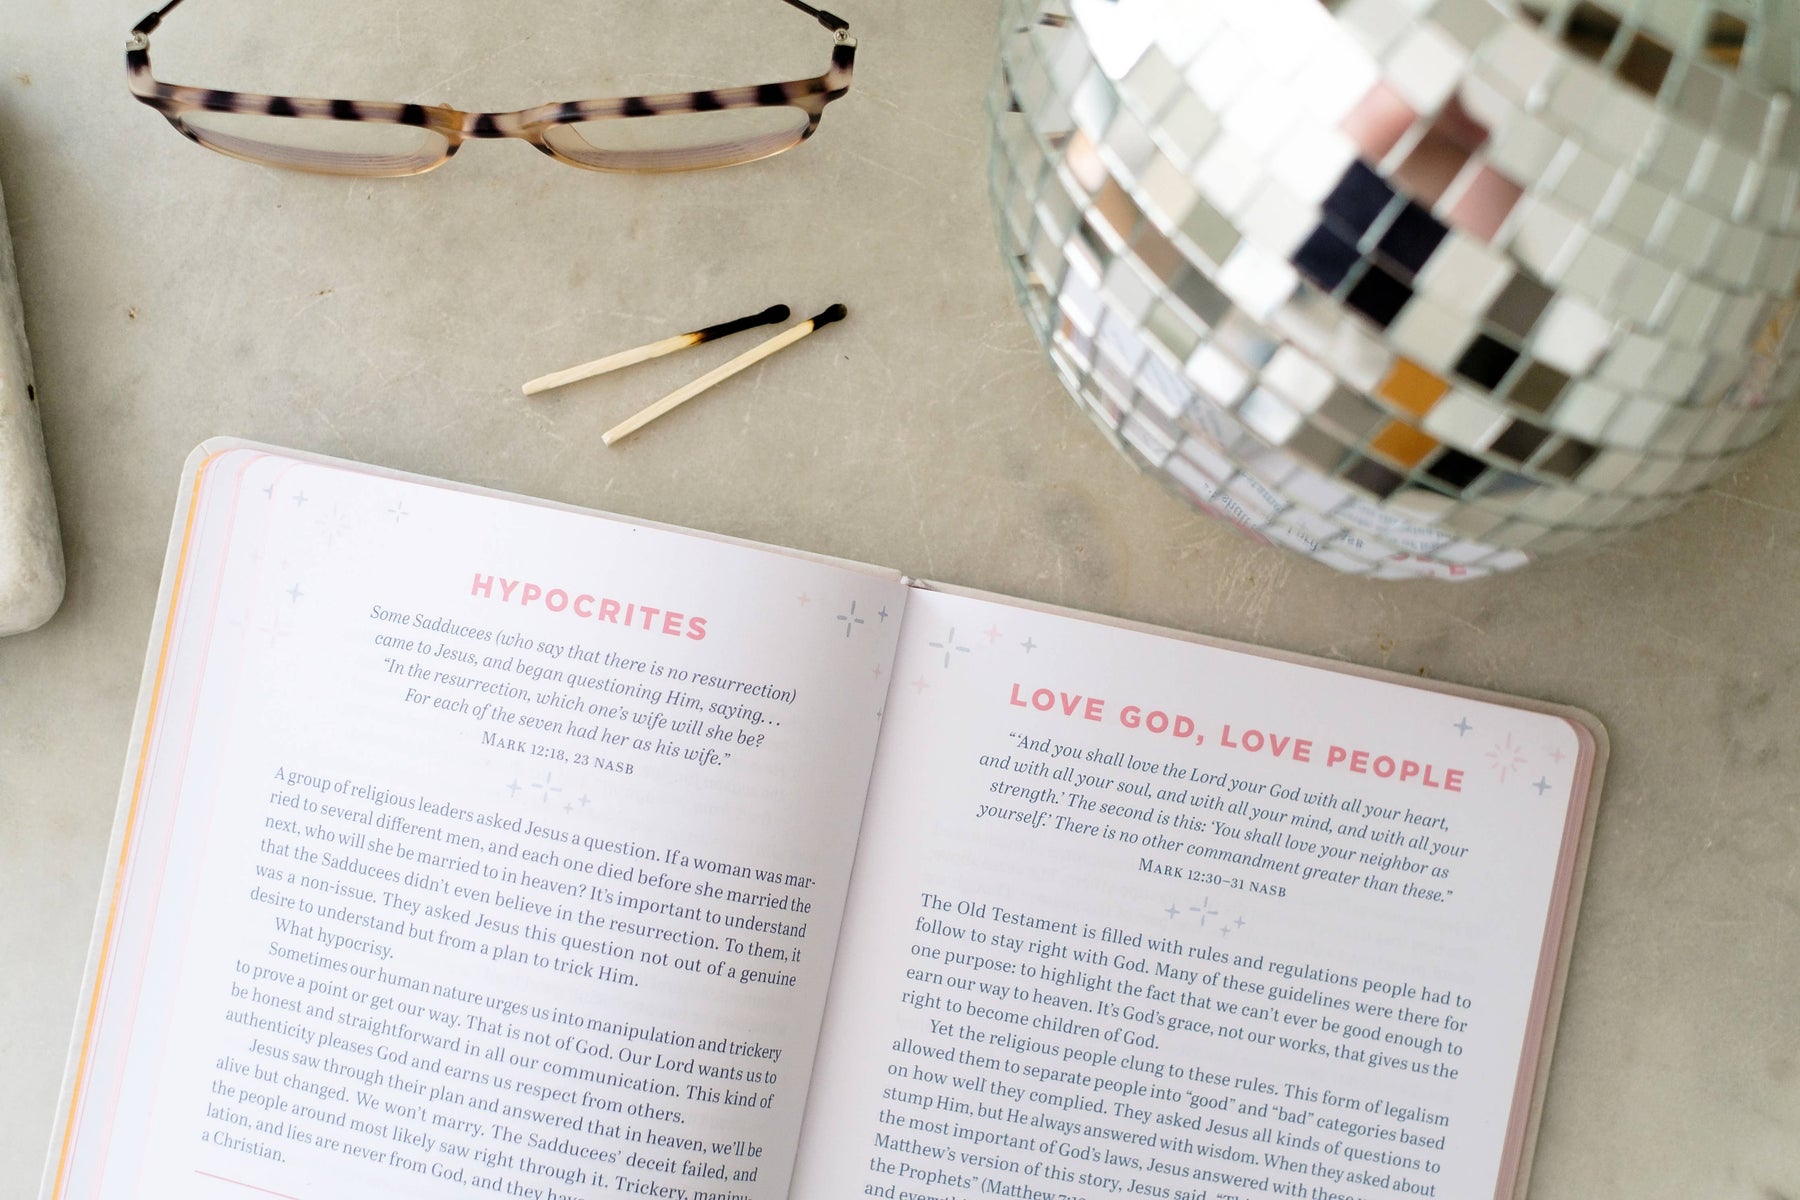 HYPOCRITES
Some Sadducees (who say that there is no resurrection)
came to Jesus, and began questioning Him, saying...
“In the resurrection, which one’s wife will she be?
For each of the seven had her as his wife.”
MARK 12:18, 23 NASB
A group of religious leaders asked Jesus a question. If a woman was mar-
ried to several different men, and each one died before she married the
next, who will she be married to in heaven? It’s important to understand
that the Sadducees didn’t even believe in the resurrection. To them, it
was a non-issue. They asked Jesus this question not out of a genuine
desire to understand but from a plan to trick Him.
What hypocrisy.
Sometimes our human nature urges us into manipulation and trickery
to prove a point or get our way. That is not of God. Our Lord wants us to
be honest and straightforward in all our communication. This kind of
authenticity pleases God and earns us respect from others.
Jesus saw through their plan and answered that in heaven, we’ll be
alive but changed. We won’t marry. The Sadducees’ deceit failed, and
the people around most likely saw right through it. Trickery, manipu-
lation, and lies are never from God, and they
a Christian.
LOVE GOD, LOVE PEOPLE
“‘And you shall love the Lord your God with all your heart,
and with all your soul, and with all your mind, and with all your
strength.’ The second is this: ‘You shall love your neighbor as
yourself.’ There is no other commandment greater than these.”
MARK 12:30–31 NASB
The Old Testament is filled with rules and regulations people had to
follow to stay right with God. Many of these guidelines were there for
one purpose: to highlight the fact that we can’t ever be good enough to
earn our way to heaven. It’s God’s grace, not our works, that gives us the
right to become children of God.
Yet the religious people clung to these rules. This form of legalism
allowed them to separate people into “good” and “bad” categories based
on how well they complied. They asked Jesus all kinds of questions to
stump Him, but He always answered with wisdom. When they asked about
the most important of God’s laws, Jesus answered with these
Matthew’s version of this story, Jesus said,
the Prophets” (Matthew
and